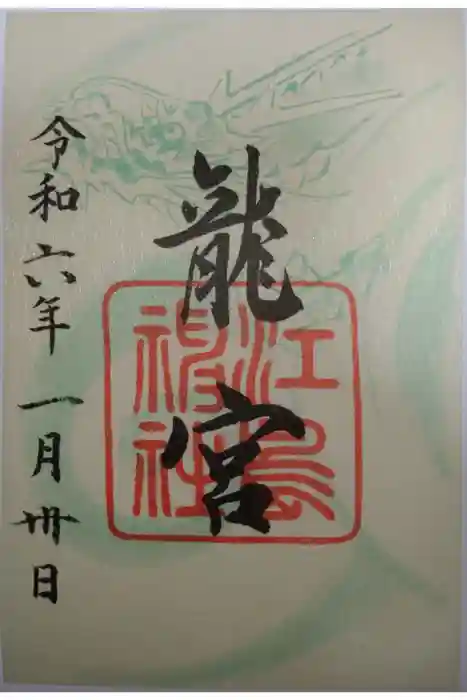 龍宮
江島
神社
令和六年一月卅日